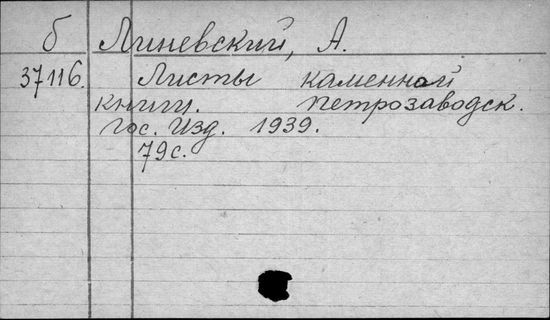 б Линевский, А.
37116. Листы каменной
книги. Петрозаводск.
Гос. Изд. 1939.
79с.